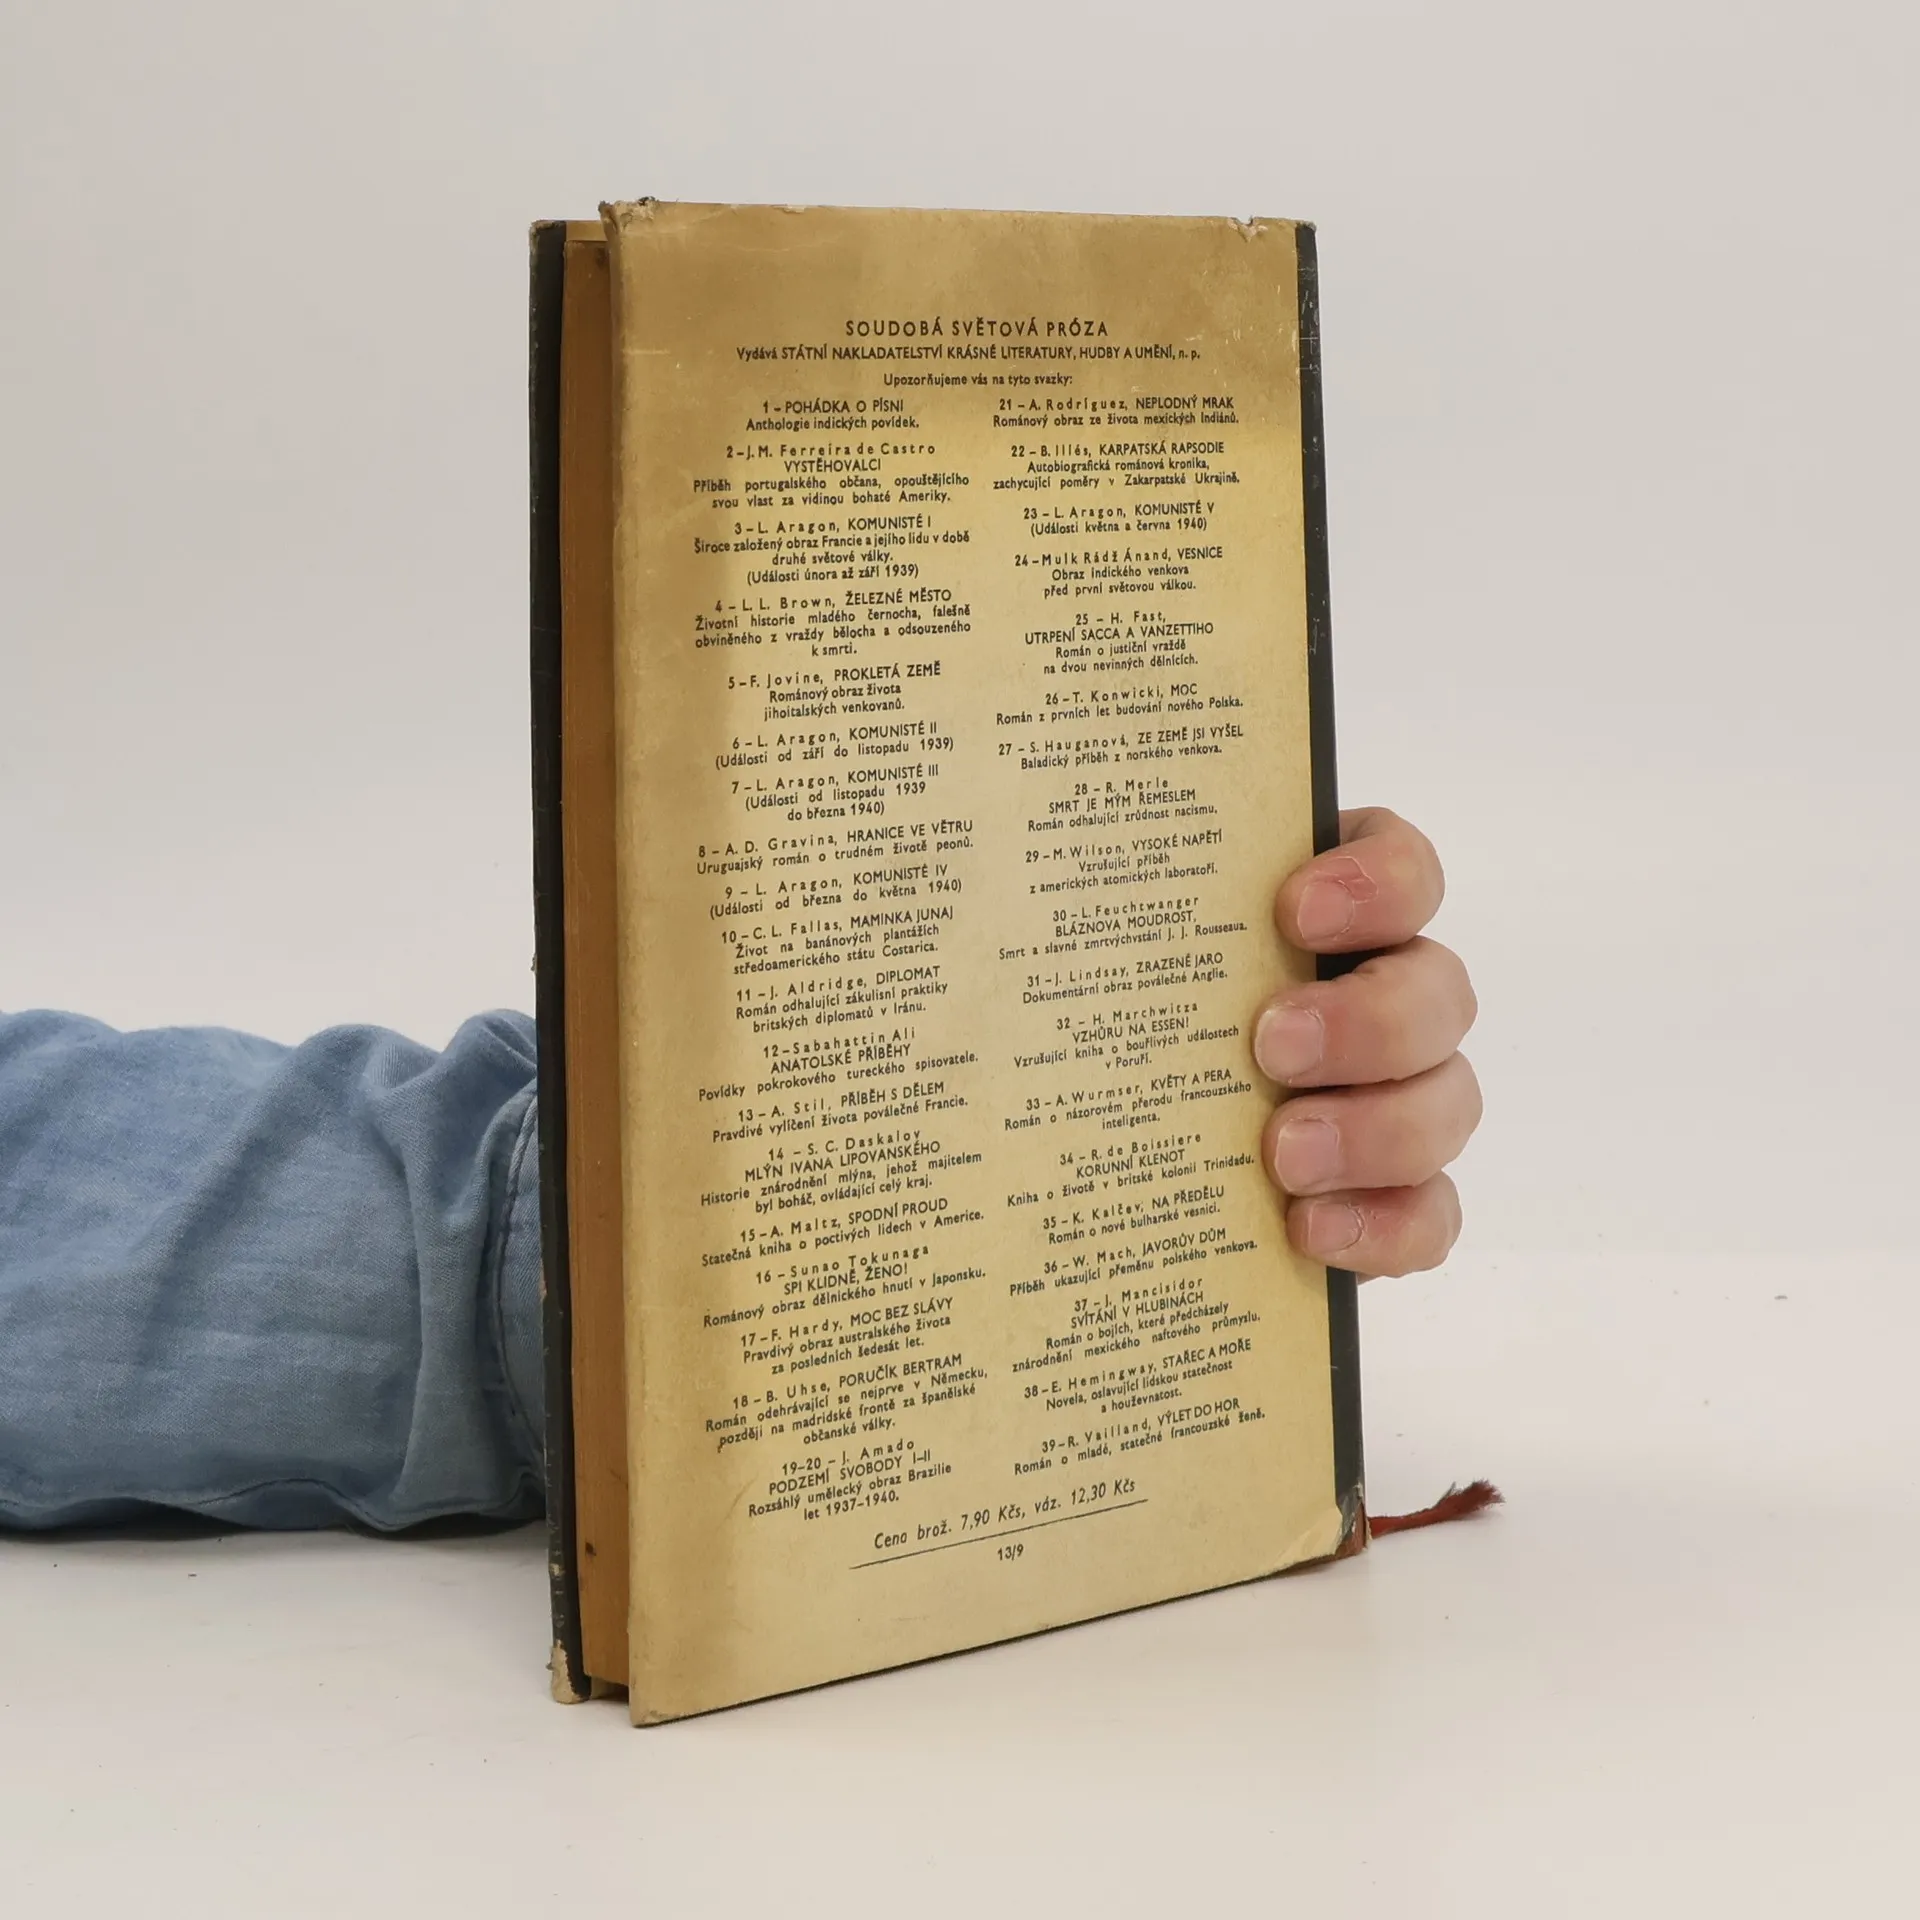 SOUDOBÁ SVĚTOVÁ PRÓZA
Vydává STÁTNÍ NAKLADATELSTVÍ KRÁSNÉ LITERATURY, HUDBY A UMĚNÍ, n. p.
Upozorňujeme vás na tyto svazky:
1 – POHÁDKA O PÍSNI
Anthologie indických povídek.
2 – J. M. Ferreira de Castro
VYSTĚHOVALCI
Příběh portugalského občana, opouštějícího
svou vlast za vidinou bohaté Ameriky.
3 – L. Aragon, KOMUNISTÉ I
Široce založený obraz Francie a jejího lidu v době
druhé světové války.
(Události února až září 1939)
4 – L. L. Brown, ŽELEZNÉ MĚSTO
Životní historie mladého černocha, falešně
obviněného z vraždy bělocha a odsouzeného
k smrti.
5 – F. Jovine, PROKLETÁ ZEMĚ
Románový obraz života
jihoitalských venkovanů.
6 – L. Aragon, KOMUNISTÉ II
(Události od září do listopadu 1939)
7 – L. Aragon, KOMUNISTÉ III
(Události od listopadu 1939
do března 1940)
8 – A. D. Gravina, HRANICE VE VĚTRU
Uruguajský román o trudném životě peonů.
9 – L. Aragon, KOMUNISTÉ IV
(Události od března do května 1940)
10 – C. L. Fallas, MAMINKA JUNAJ
Život na banánových plantážích
středoamerického státu Costarica.
11 – J. Aldridge, DIPLOMAT
Román odhalující zákulisní praktiky
britských diplomatů v Iránu.
12 – Sabahattin Ali
ANATOLSKÉ PŘÍBĚHY
Povídky pokrokového tureckého spisovatele.
13 – A. Stil, PŘÍBĚH S DĚLEM
Pravdivé vylíčení života poválečné Francie.
14 – S. C. Daskalov
MLÝN IVANA LIPOVANSKÉHO
Historie znárodnění mlýna, jehož majitelem
byl boháč, ovládající celý kraj.
15 – A. Maltz, SPODNÍ PROUD
Statečná kniha o poctivých lidech v Americe.
16 – Sunao Tokunaga
SPI KLIDNĚ, ŽENO!
Románový obraz dělnického hnutí v Japonsku.
17 – F. Hardy, MOC BEZ SLÁVY
Pravdivý obraz australského života
za posledních šedesát let.
18 – B. Uhse, PORUČÍK BERTRAM
Román odehrávající se nejprve v Německu,
později na madridské frontě za španělské
občanské války.
19–20 – J. Amado
PODZEMÍ SVOBODY I–II
Rozsáhlý umělecký obraz Brazilie
let 1937–1940.
21 – A. Rodríguez, NEPLODNÝ MRAK
Románový obraz ze života mexických Indiánů.
22 – B. Illés, KARPATSKÁ RAPSODIE
Autobiografická románová kronika,
zachycující poměry v Zakarpatské Ukrajině.
23 – L. Aragon, KOMUNISTÉ V
(Události května a června 1940)
24 – Mulk Rádž Ánand, VESNICE
Obraz indického venkova
před první světovou válkou.
25 – H. Fast,
UTRPENÍ SACCA A VANZETTIHO
Román o justiční vraždě
na dvou nevinných dělnících.
26 – T. Konwicki, MOC
Román z prvních let budování nového Polska.
27 – S. Hauganová, ZE ZEMĚ JSI VYŠEL
Baladický příběh z norského venkova.
28 – R. Merle
SMRT JE MÝM ŘEMESLEM
Román odhalující zrůdnost nacismu.
29 – M. Wilson, VYSOKÉ NAPĚTÍ
Vzrušující příběh
z amerických atomických laboratoří.
30 – L. Feuchtwanger
BLÁZNOVA MOUDROST,
Smrt a slavné zmrtvýchvstání J. J. Rousseaua.
31 – J. Lindsay, ZRAZENÉ JARO
Dokumentární obraz poválečné Anglie.
32 – H. Marchwitza
VZHŮRU NA ESSEN!
Vzrušující kniha o bouřlivých událostech
v Porúří.
33 – A. Wurmser, KVĚTY A PERA
Román o názorovém přerodu francouzského
inteligenta.
34 – R. de Boissiere
KORUNNÍ KLENOT
Kniha o životě v britské kolonii Trinidadu.
35 – K. Kalčev, NA PŘEDĚLU
Román o nové bulharské vesnici.
36 – W. Mach, JAVORŮV DŮM
Příběh ukazující přeměnu polského venkova.
37 – J. Mancisidor
SVÍTÁNÍ V HLUBINÁCH
Román o bojích, které předcházely
znárodnění mexického naftového průmyslu.
38 – E. Hemingway, STAŘEC A MOŘE
Novela, oslavující lidskou statečnost
a houževnatost.
39 – R. Vailland, VÝLET DO HOR
Román o mladé, statečné francouzské ženě.
Cena brož. 7,90 Kčs, váz. 12,30 Kčs
13/9